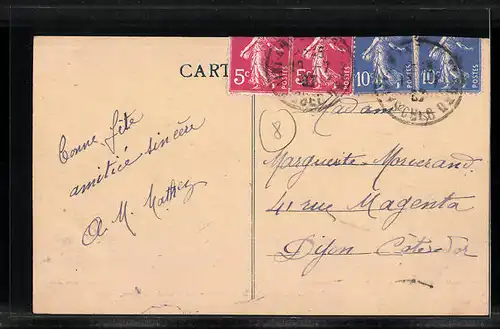 CART
5c POSTES 5c POSTES 10c POSTES 10c POSTES
8
Bonne fête
amitié sincère
A. M. Mathey
Madame
Marguerite
41 rue Magenta
Dijon Côte d'or